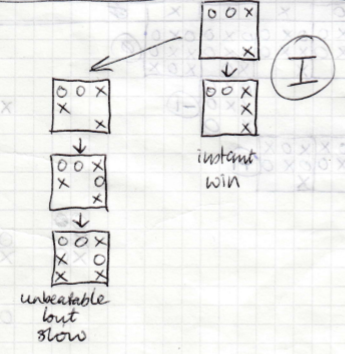 O O X
X
I
O O X
X
X
O O X
X
X
instant
win
O O X
X O
X
O O X
X O
X X
unbeatable
but
slow